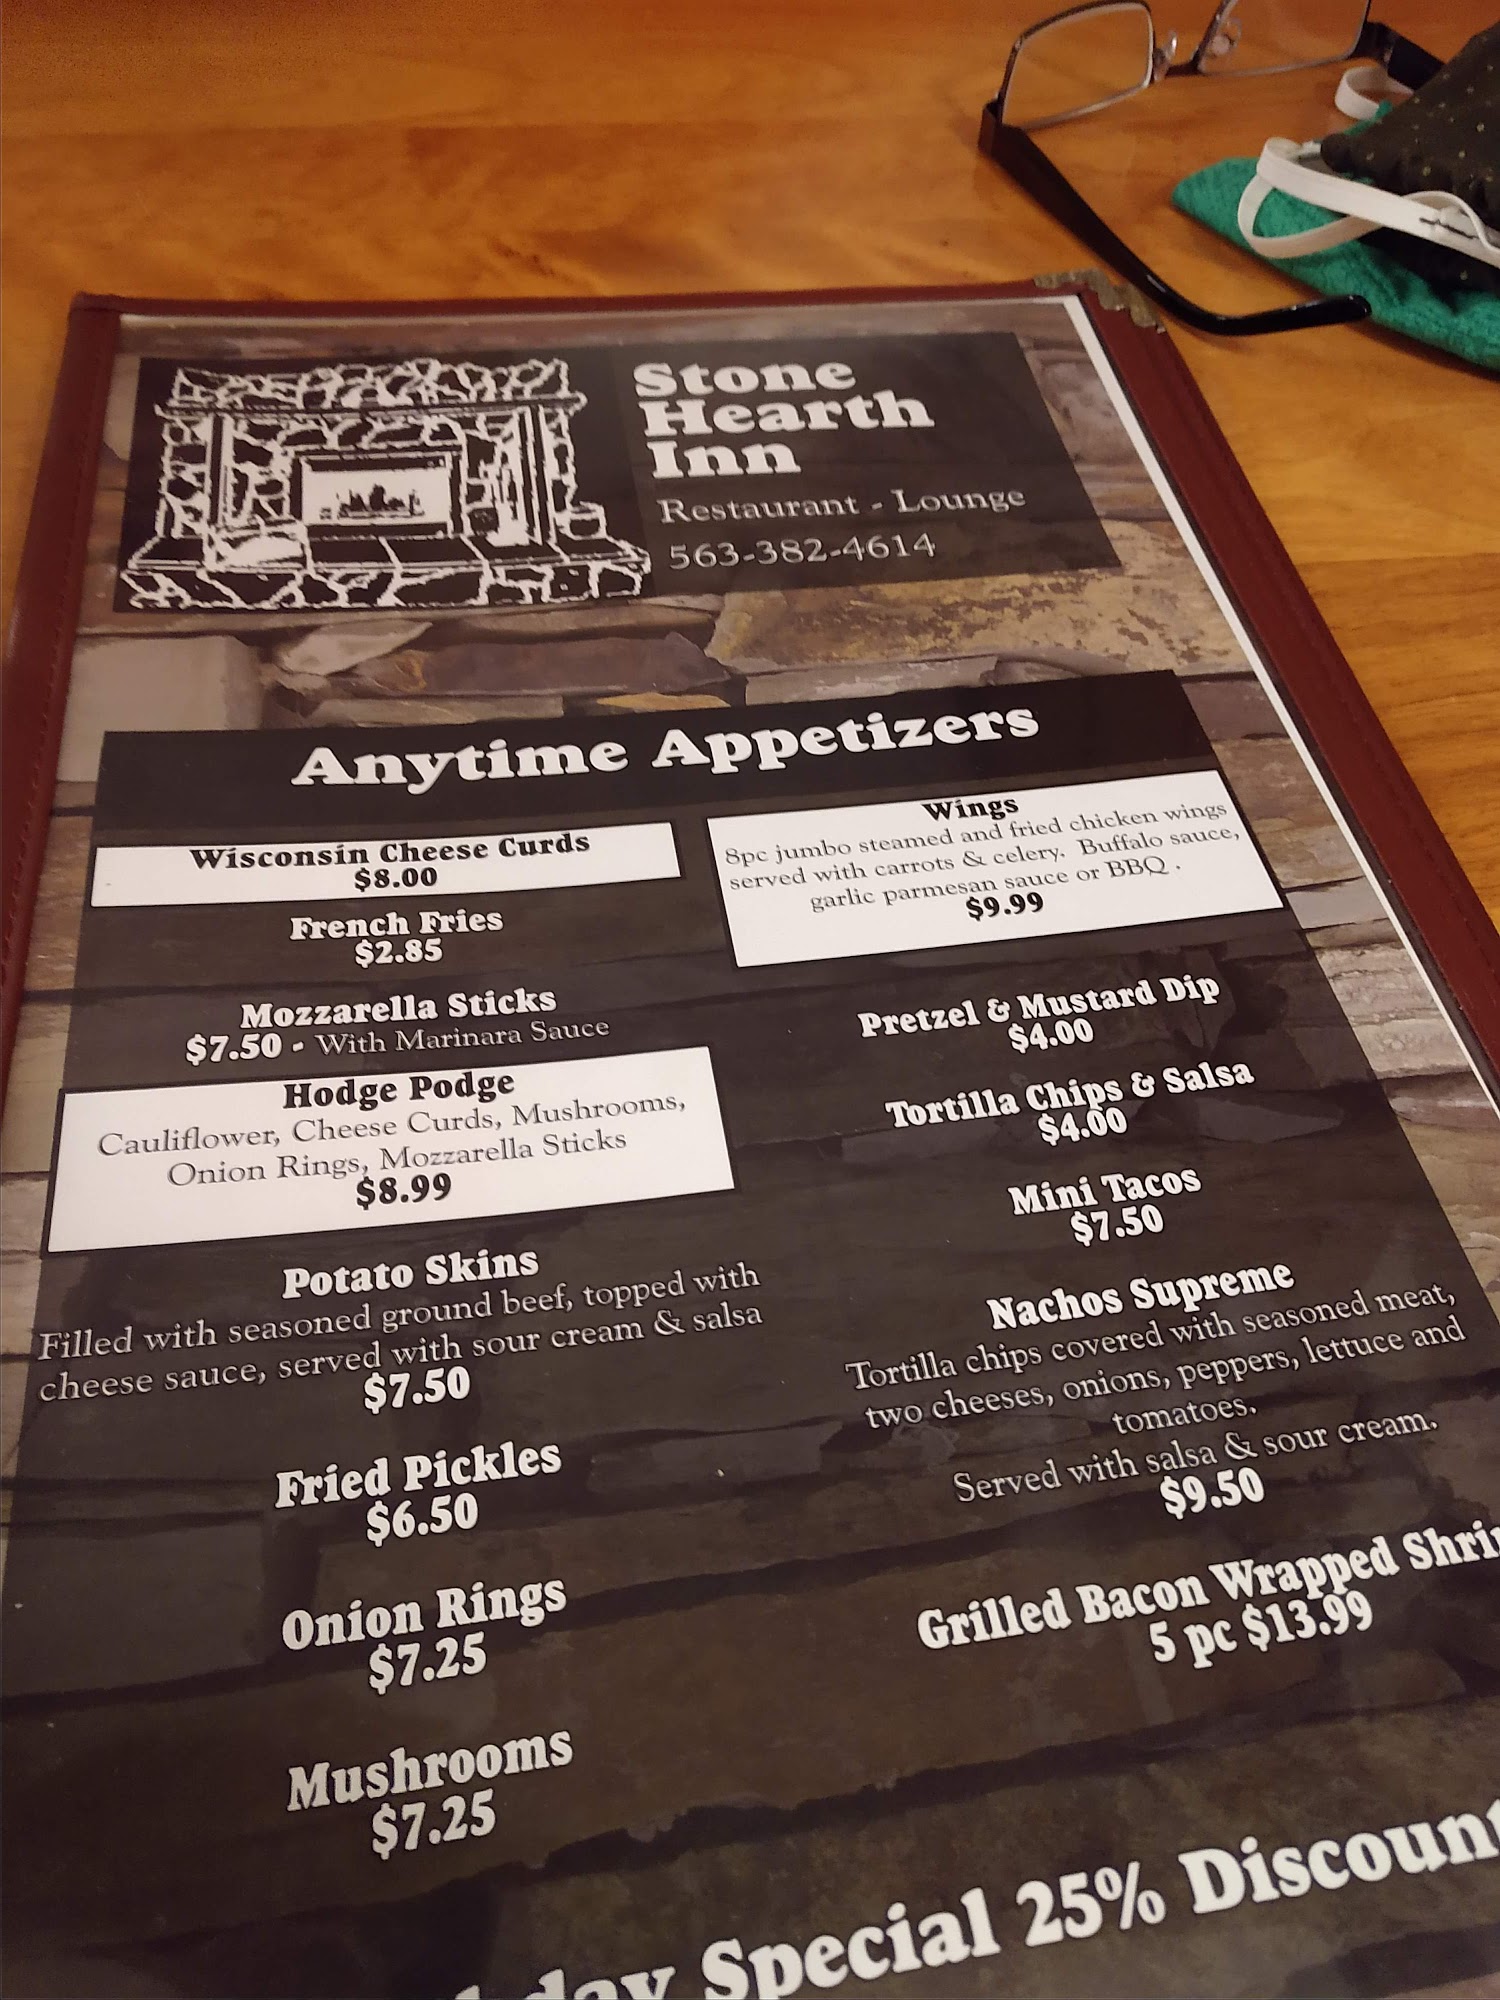 Stone
Hearth
Inn
Restaurant - Lounge
563-382-4614
Anytime Appetizers
Wisconsin Cheese Curds
$8.00
French Fries
$2.85
Mozzarella Sticks
$7.50 - With Marinara Sauce
Hodge Podge
Cauliflower, Cheese Curds, Mushrooms,
Onion Rings, Mozzarella Sticks
$8.99
Potato Skins
Filled with seasoned ground beef, topped with
cheese sauce, served with sour cream & salsa
$7.50
Fried Pickles
$6.50
Onion Rings
$7.25
Mushrooms
$7.25
Wings
8pc jumbo steamed and fried chicken wings
served with carrots & celery. Buffalo sauce,
garlic parmesan sauce or BBQ .
$9.99
Pretzel & Mustard Dip
$4.00
Tortilla Chips & Salsa
$4.00
Mini Tacos
$7.50
Nachos Supreme
Tortilla chips covered with seasoned meat,
two cheeses, onions, peppers, lettuce and
tomatoes.
Served with salsa & sour cream.
$9.50
Grilled Bacon Wrapped
5 pc $13.99
Special 25% Discount